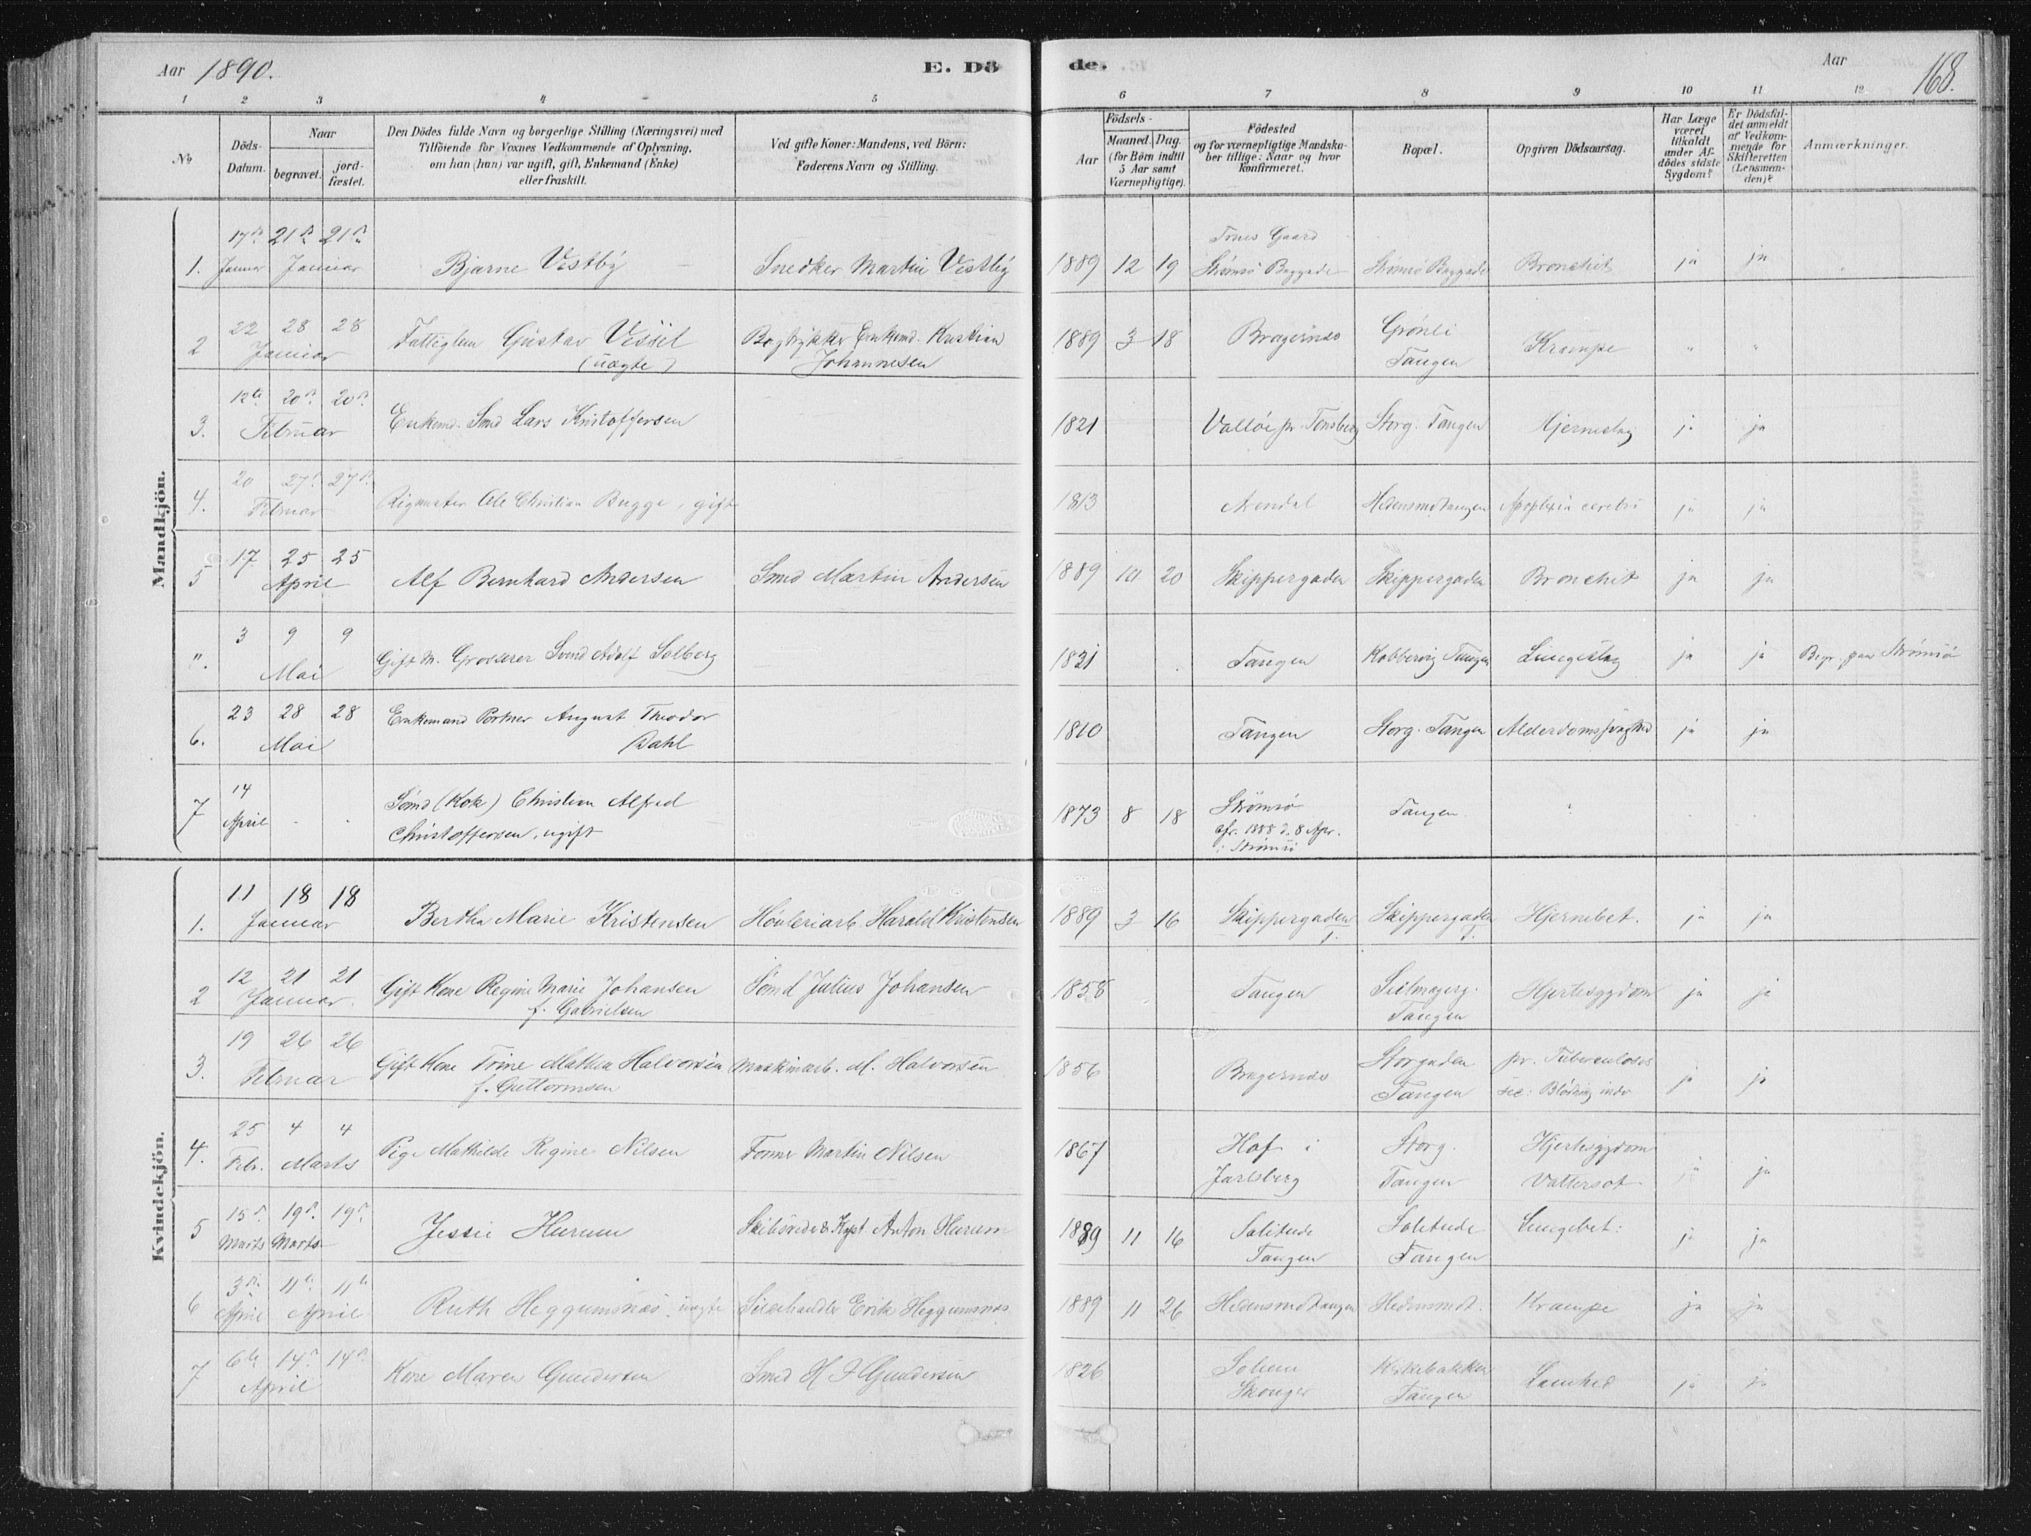 Aar 1890. E. Dö de. Aar 168.
1 2 3 4 5 6 7 8 9 10 11 12
No
Döds-Datum.
Naar
begravet. jordfæstet.
Den Dödes fulde Navn og borgerlige Stilling (Næringsvei) med Tilföiende for Voxnes Vedkommende af Oplysning, om han (hun) var ugift, gift, Enkemand (Enke) eller fraskilt.
Ved gifte Koner: Mandens, ved Börn: Faderens Navn og Stilling.
Födsels-
Aar Maaned. Dag.
(for Börn indtil 5 Aar samt Værnepligtige).
Födested
og for værnepligtige Mandskaber tillige: Naar og hvor konfirmeret.
Bopæl.
Opgiven Dödsaarsag.
Har Læge været tilkaldt under Afdödes sidste Sygdom?
Er Dödsfaldet anmeldt af Vedkommende for Skifteretten (Lensmanden)?
Anmærkninger.
Mandkjön.
1. 17de Januar 21de 21de Januar Bjarne Vestby Snedker Martin Vestby 1889 12 19 Gaard Strömsö Baggade Strömsö Baggade Bronchit ja ja
2 22 28 28 Januar Fattiglem Gustav (uægte) Bogtrykker Enkemd. Kristian Johannesen 1889 3 18 Bragernæs Grönli Tangen Krampe " "
3. 12te 20de 20de Februar Enkemd. Smd Lars Kristoffersen 1821 Vallöe pr. Tönsberg Storg. Tangen Hjerneslag ja ja
4. 20 27de 27de Februar Rigmester Ole Christian Bugge, gift 1813 Arendal Hedensmdtangen Apoplexia cerebri ja ja
5 17 25 25 April Alf Bernhard Andersen Smed Martin Andersen 1889 10 20 Skippergaden Skippergaden Bronchit ja ja
". 3 9 9 Mai Gift M. Grosserer Svend Adolf Solberg 1821 Tangen Kobbervig Tangen Lungeslag ja ja Begr. paa Strömsö
6. 23 28 28 Mai Enkemand Portner August Theodor Dahl 1810 Tangen Storg. Tangen Alderdomssvaghed ja ja
7 14 April Sömd (Kok) Christian Alfred Christoffersen, ugift 1873 8 18 Strömsö cfr. 1888 d. 8 Apr. i Strömsö Tangen "
Kvindekjön.
1. 11 18 18 Januar Bertha Marie Kristensen Hövleriarb. Harald Kristensen 1889 3 16 Skippergaden T. Skippergaden T. Hjernebet. ja ja
2 12 21 21 Januar. Gift Kone Regine Marie Johansen f. Gabrielsen Sömd Julius Johansen 1858 Tangen Seilmagerg. Tangen Hjertesygdom ja ja
3. 19 26 26 Februar Gift Kone Trine Mathea Halvorsen f. Guttormsen Maskinarb. M. Halvorsen 1856 Bragernæs Storgaden Tangen pr. Tuberculosis sec: Blödning indv ja ja
4. 25 Febr. 4 4 Marts Pige Mathilde Regine Nilsen Former Martin Nilsen 1867 Hof i Jarlsberg Storg. Tangen Hjertesygdom Vattersot ja ja
5 15de Marts 19de 19de Marts Jessie Hurum Skibsreder & Kapt Anton Hurum 1889 11 16 Solitude Tangen Solitude Tangen Lungebet: ja ja
6 3die April 11te 11te April Ruth Heggumsnæs uægte Erik Heggumsnæs 1889 11 26 Hedensmdtangen Hedensmdt. Krampe ja ja
7 6te 14de 14de April Kone Maren Gundersen Smed H J Gundersen 1826 Solum Skoger Tangen Lamhed ja ja